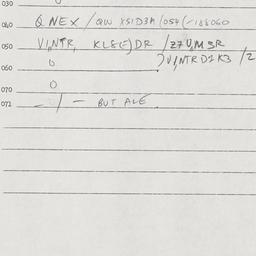 030
040 Q NEX / QW XSID3A (054 (-188060
050 VI,NTR, KL8(E)DR / Z7V,M3R
060 0 )VI,NTRD1K3 /2
070 0
072 - / - BUT ALE.